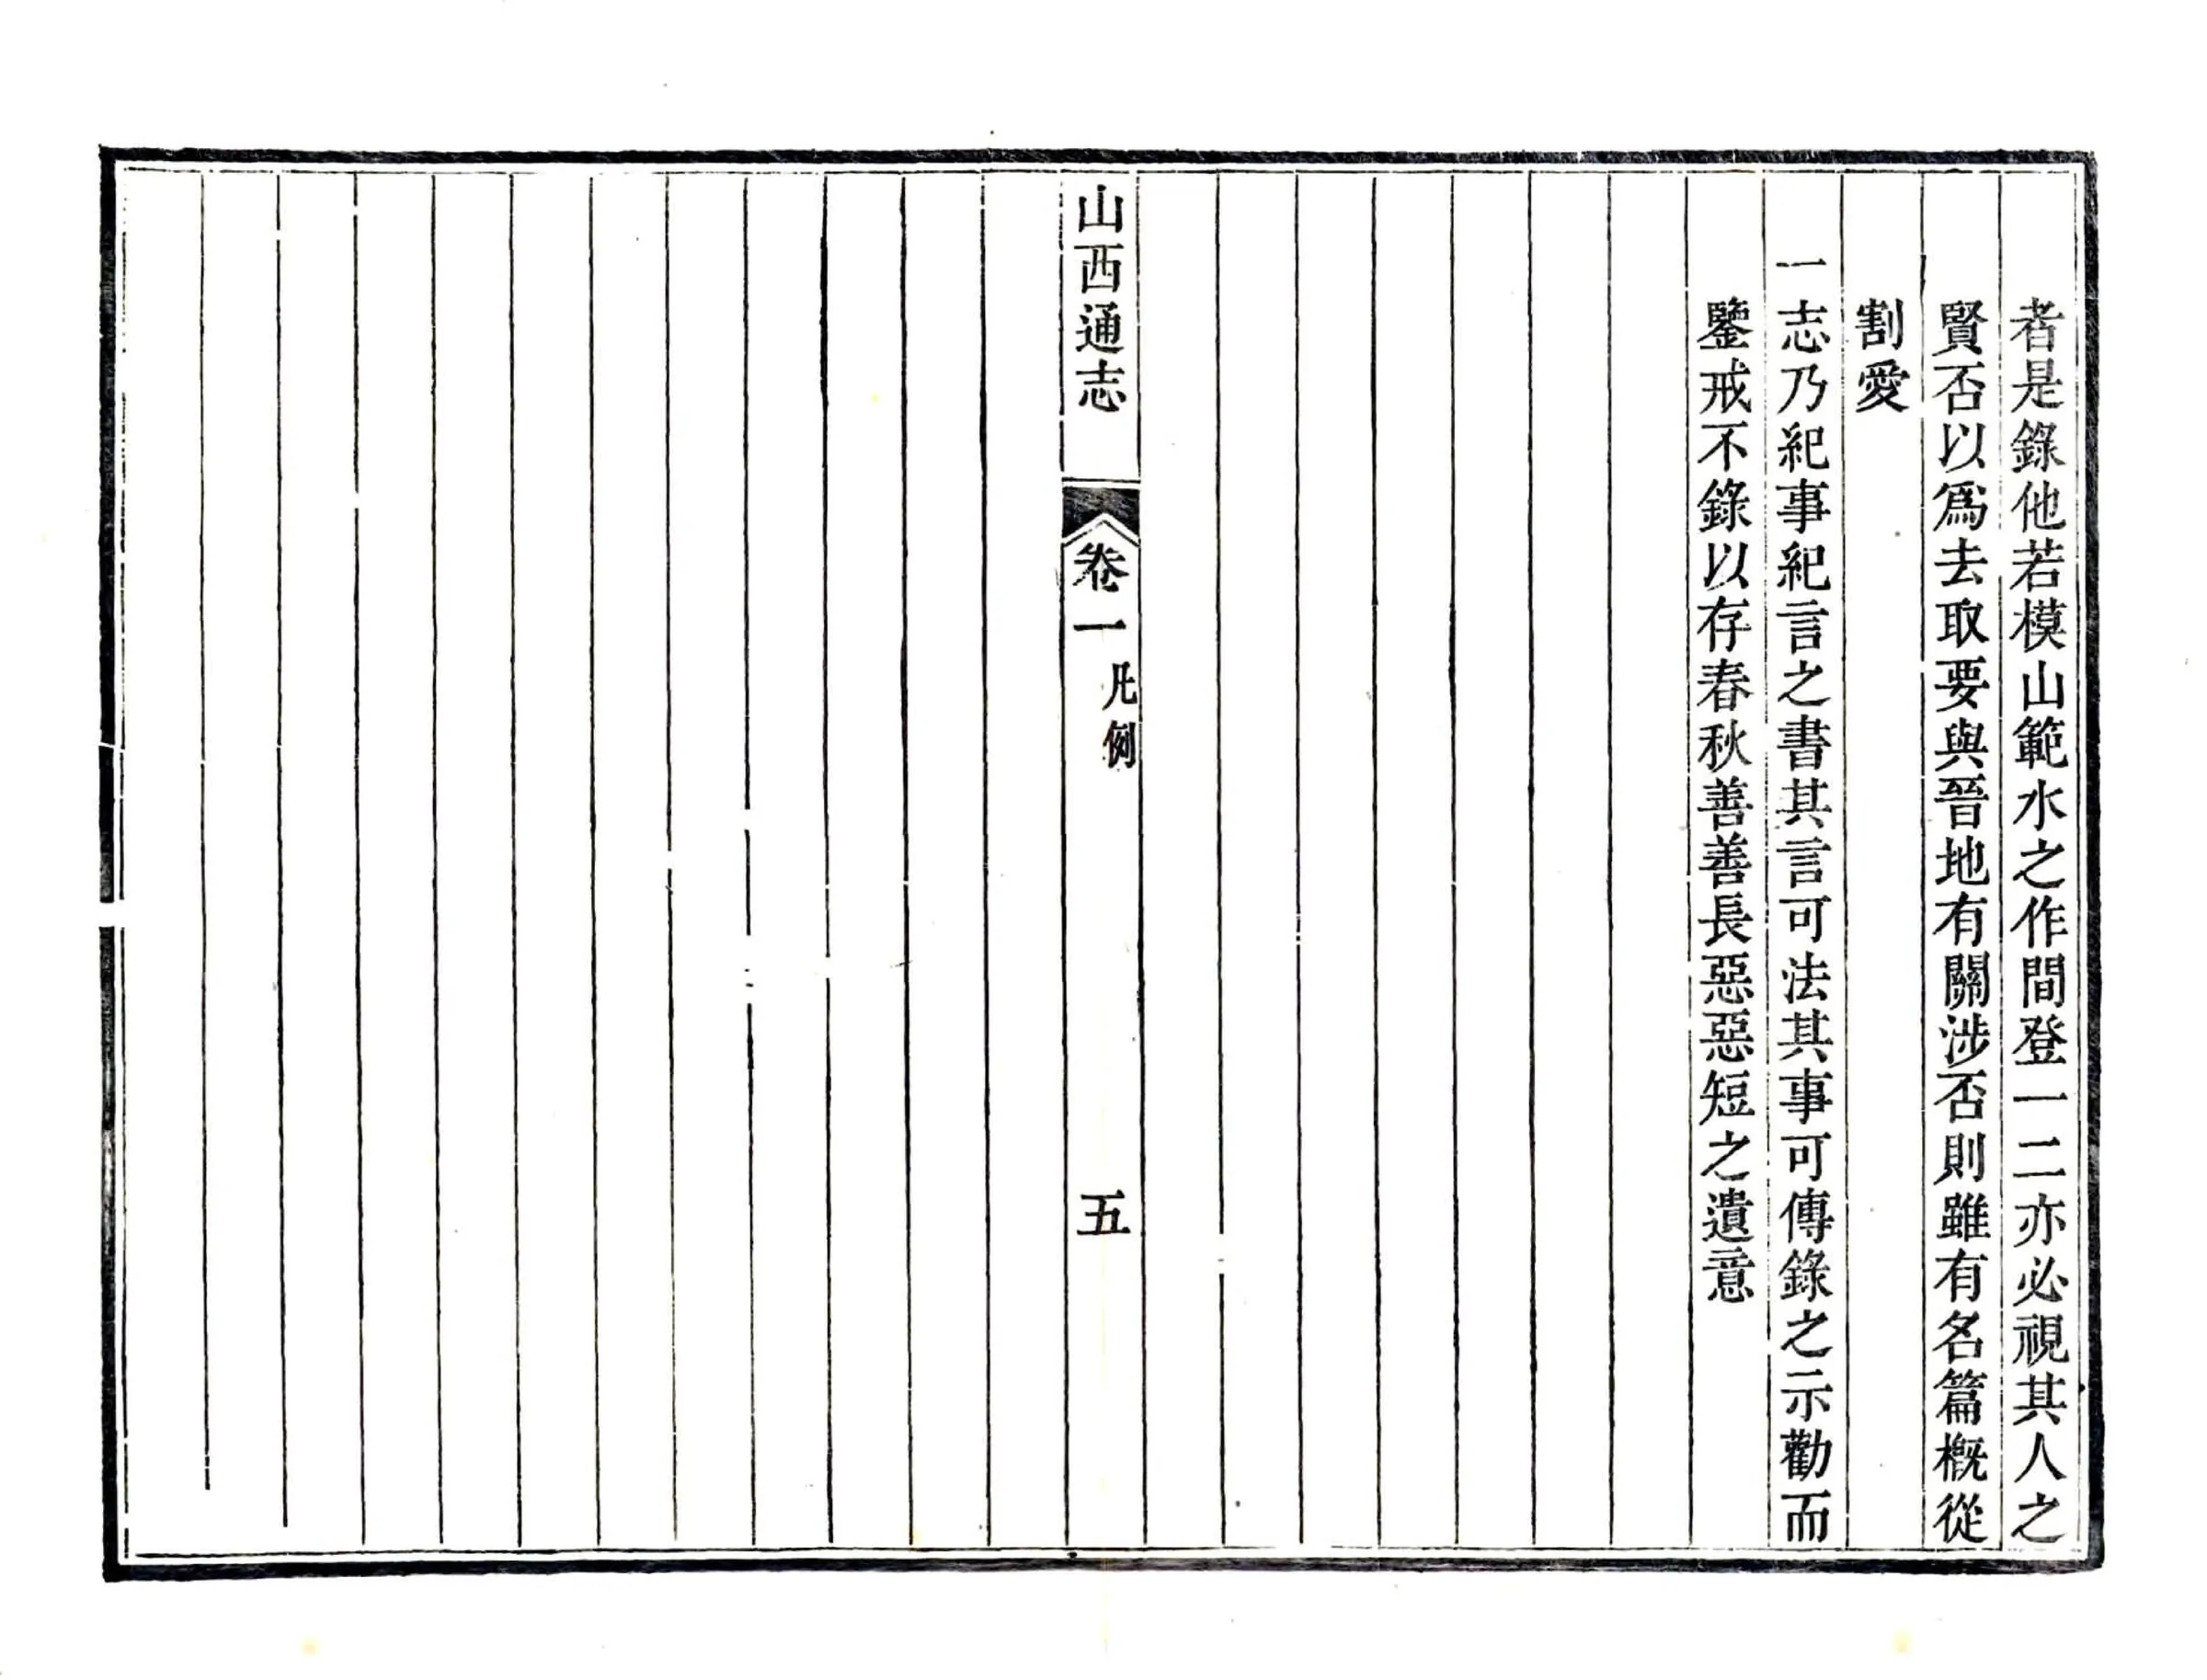 者是錄他若模山範水之作間登一二亦必視其人之
賢否以爲去取要與晉地有關涉否則雖有名篇槪從
割愛
一志乃紀事紀言之書其言可法其事可傳錄之示勸而
鑒戒不錄以存春秋善善長惡惡短之遺意
山西通志
卷一
凡例
五